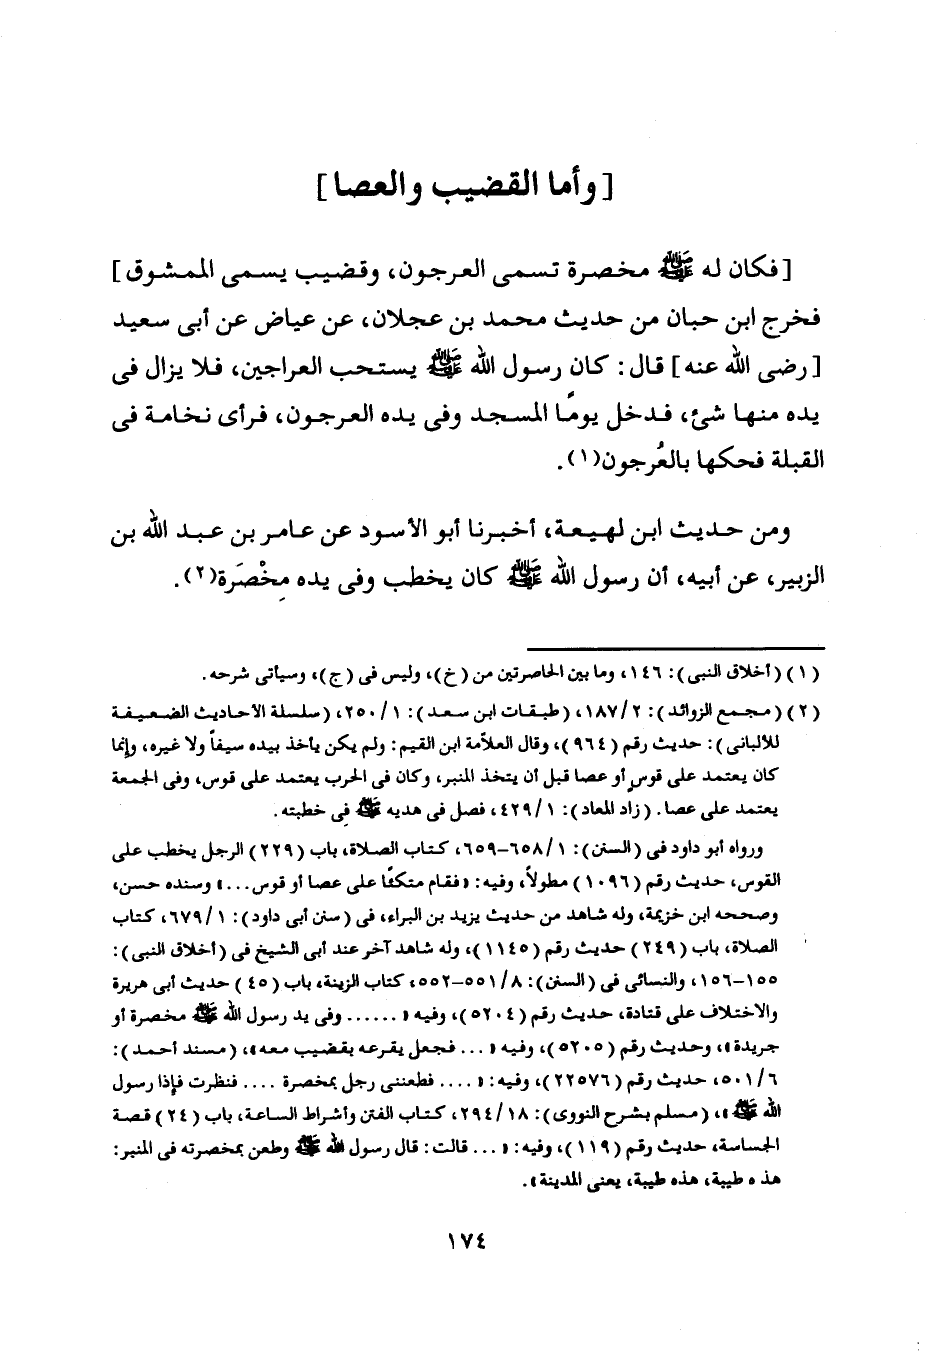 [وأما القضيب والعصا]
[فكان له ﷺ مخصرة تسمى العرجون، وقضيب يسمى الممشوق]
فخرج ابن حبان من حديث محمد بن عجلان، عن عياض عن أبى سعيد
[رضى الله عنه] قال: كان رسول الله ﷺ يستحب العراجين، فلا يزال فى
يده منها شئ، فدخل يومًا المسجد وفى يده العرجون، فرأى نخامة فى
القبلة فحكها بالعُرجون(١).
ومن حديث ابن لهيعة، أخبرنا أبو الأسود عن عامر بن عبد الله بن
الزبير، عن أبيه، أن رسول الله ﷺ كان يخطب وفى يده مِخْصَرَة(٢).
(١) (أخلاق النبى): ١٤٦، وما بين الحاصرتين من (خ)، وليس فى (ج)، وسيأتى شرحه.
(٢) (مجمع الزوائد): ١٨٧/٢، (طبقات ابن سعد): ٢٥٠/١، (سلسلة الأحاديث الضعيفة
للألبانى): حديث رقم (٩٦٤)، وقال العلاّمة ابن القيم: ولم يكن يأخذ بيده سيفاً ولا غيره، وإنما
كان يعتمد على قوسٍ أو عصا قبل أن يتخذ المنبر، وكان فى الحرب يعتمد على قوس، وفى الجمعة
يعتمد على عصا. (زاد المعاد): ٤٢٩/١، فصل فى هديه ﷺ فى خطبته.
ورواه أبو داود فى (السنن): ٦٥٨/١-٦٥٩، كتاب الصلاة، باب (٢٢٩) الرجل يخطب على
القوس، حديث رقم (١٠٩٦) مطولاً، وفيه: «فقام متكئًا على عصا أو قوس...» وسنده حسن،
وصححه ابن خزيمة، وله شاهد من حديث يزيد بن البراء، فى (سنن أبى داود): ٦٧٩/١، كتاب
الصلاة، باب (٢٤٩) حديث رقم (١١٤٥)، وله شاهد آخر عند أبى الشيخ فى (أخلاق النبى):
١٥٥-١٥٦، والنسائى فى (السنن): ٥٥١/٨-٥٥٢، كتاب الزينة، باب (٤٥) حديث أبى هريرة
والاختلاف على قتادة، حديث رقم (٥٢٠٤)، وفيه «...... وفى يد رسول الله ﷺ مخصرة أو
جريدة»، وحديث رقم (٥٢٠٥)، وفيه «... فجعل يقرعه بقضيب معه»، (مسند أحمد):
٥٠١/٦، حديث رقم (٢٢٥٧٦)، وفيه: «.... فطعننى رجل بمخصرة .... فنظرت فإذا رسول
الله ﷺ»، (مسلم بشرح النووى): ٢٩٤/١٨، كتاب الفتن وأشراط الساعة، باب (٢٤) قصة
الجساسة، حديث رقم (١١٩)، وفيه: «... قالت: قال رسول الله ﷺ وطعن بمخصرته فى المنبر:
هذه طيبة، هذه طيبة، يعنى المدينة».
١٧٤